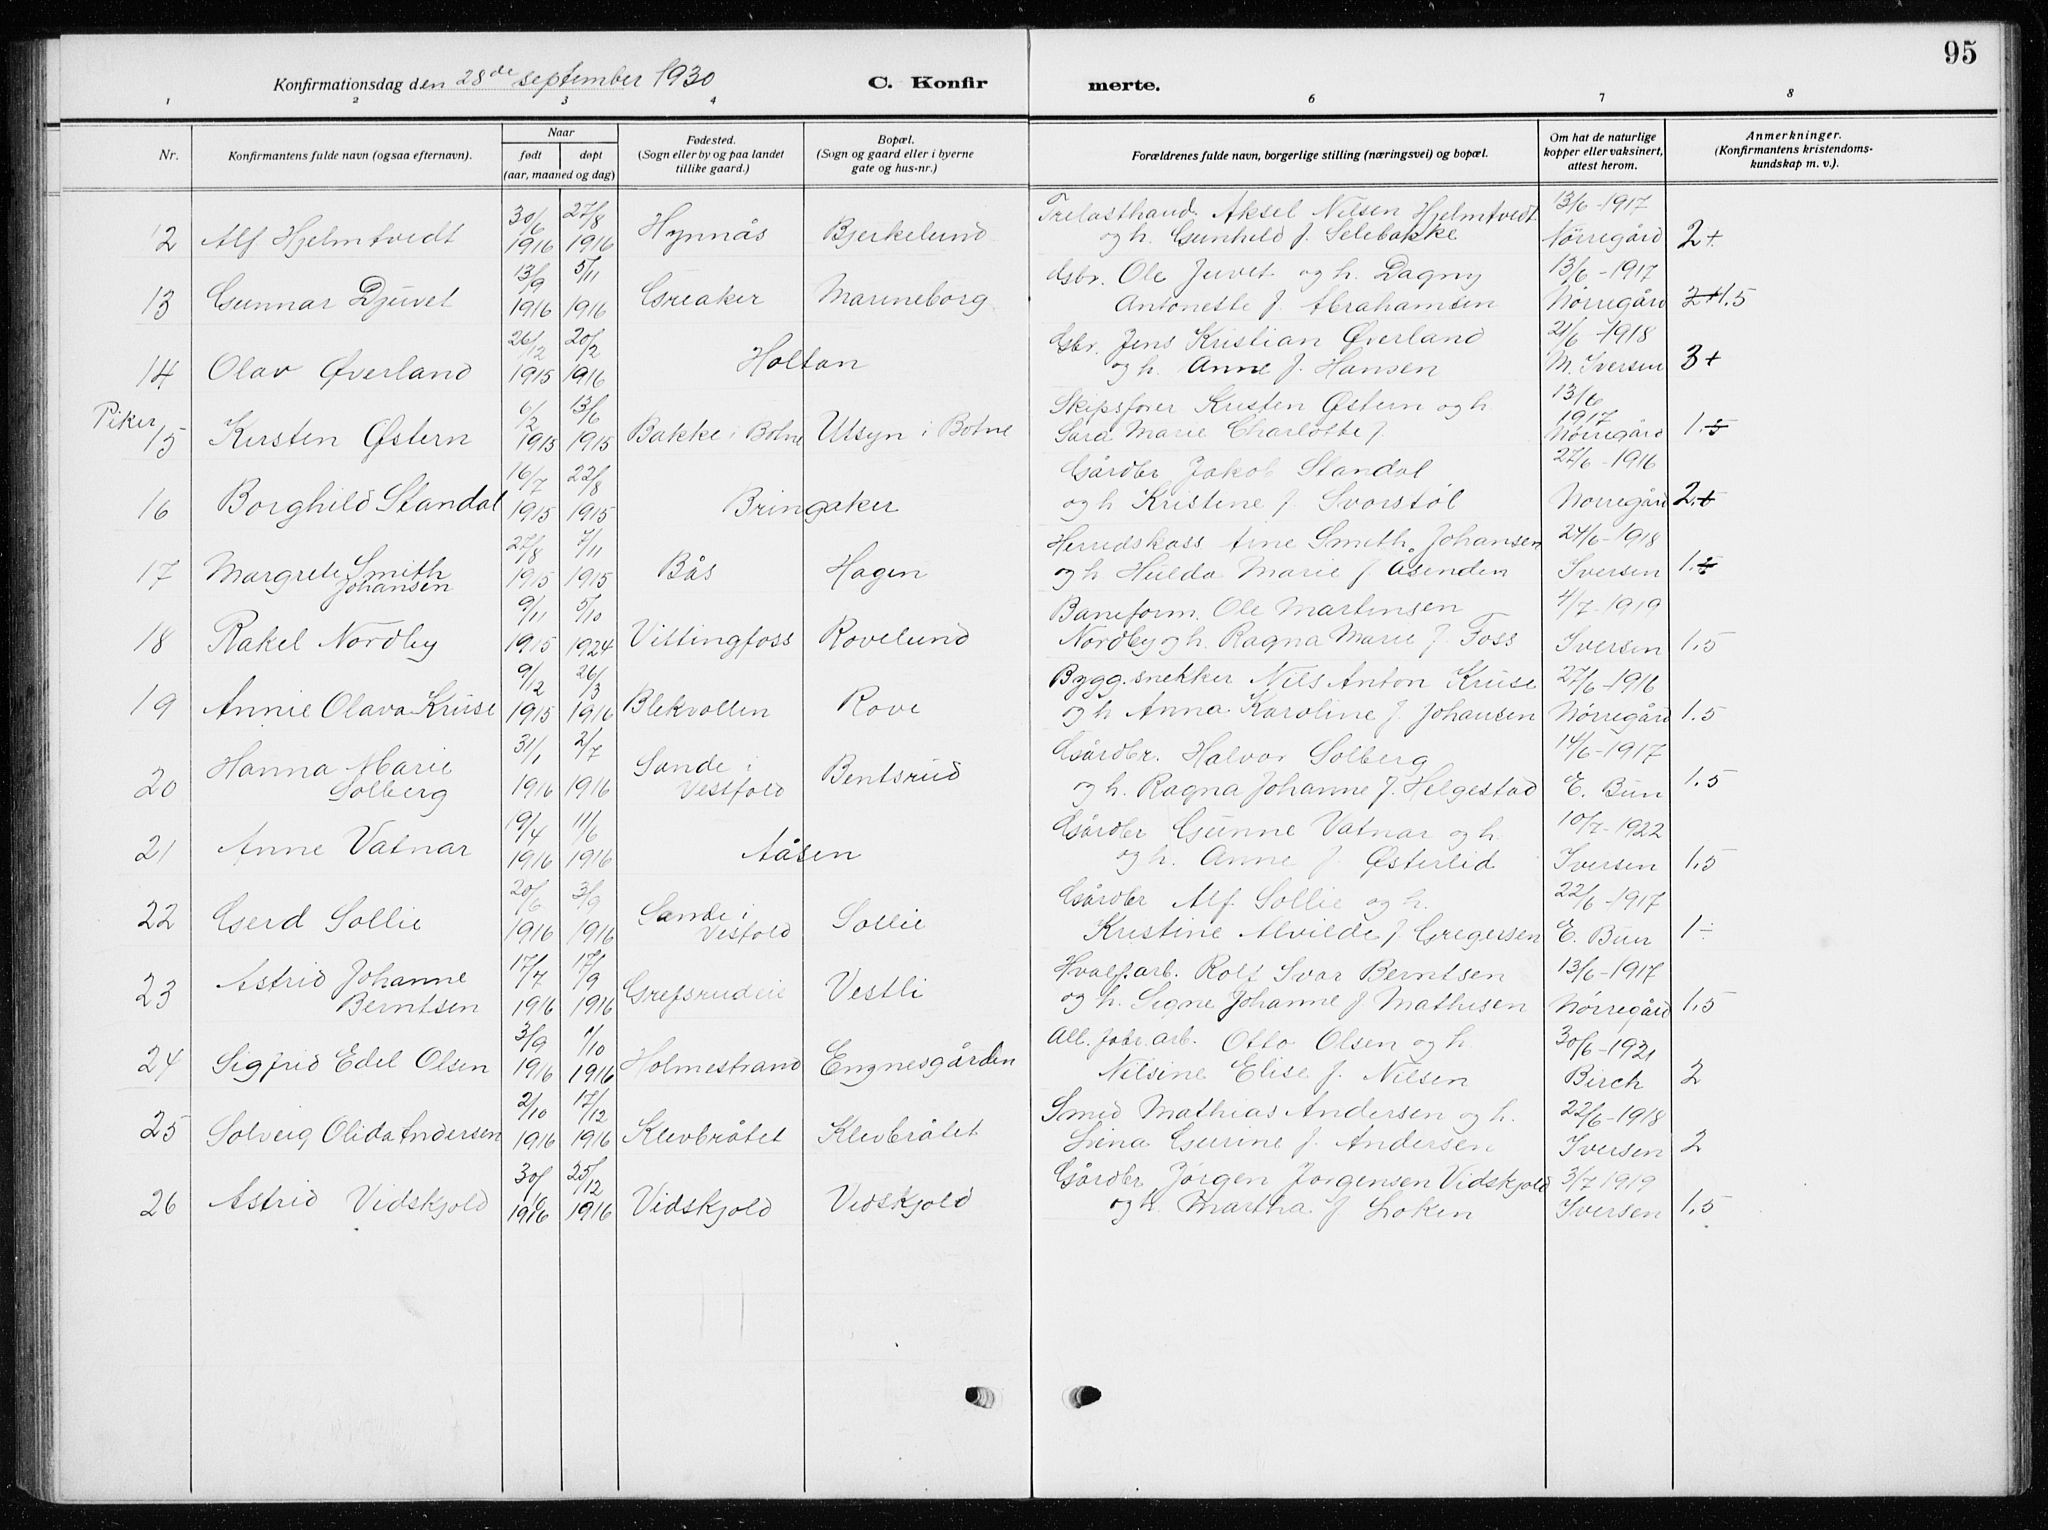 95
Konfirmationsdag den 28de september 1930
C. Konfirmerte.
1 2 3 4 6 7 8
Nr.
Konfirmantens fulde navn (ogsaa efternavn).
Naar
født døpt
(aar, maaned og dag)
Fødested.
(Sogn eller by og paa landet
tillike gaard.)
Bopæl.
(Sogn og gaard eller i byerne
gate og hus-nr.)
Forældrenes fulde navn, borgerlige stilling (næringsvei) og bopæl.
Om hat de naturlige
kopper eller vaksinert,
attest herom.
Anmerkninger.
(Konfirmantens kristendoms-
kundskap m. v.).
30/6 27/8 Trelasthand. Aksel Nilsen Hjelmtvedt 13/6-1917
12 Alf Hjelmtvedt 1916 1916 Hynnås Bjerkelund og h. Gunhild f. Selebakke Nørregård 2+
13/9 5/11 Gbr. Ole Juvet og h. Dagny 13/6-1917
13 Gunnar Djuvet 1916 1916 Greaker Marineborg Antonette f. Abrahamsen Nørregård 2+1.5
26/12 20/2 Gbr. Jens Kristian Øverland 21/6-1918
14 Olav Øverland 1915 1916 Holtan og h. Anne f. Hansen M. Iversen 3+
Piker 6/2 13/6 Skipsfører Kristen Østern og h 13/6
15 Kirsten Østern 1915 1915 Bakke i Botne Utsyn i Botne Sara Marie Charlotte f. 1917 Nørregård 1.5
16/7 22/8 Gårdbr Jakob Standal 27/6-1916
16 Borghild Standal 1915 1915 Bringaker og h Kristine f. Svorstøl Nørregård 2.+
27/8 7/11 Herredskass Arne Smith Johansen 24/6-1918
17 Margrete Smith Johansen 1915 1915 Bås Hagen og h Hulda Marie f. Åsenden Iversen
9/11 5/10 Baneform. Ole Martinsen 4/7-1919
18 Rakel Nordby 1915 1924 Vittingfoss Rovelund Nordby og h. Ragna Marie f. Foss Iversen 1.5
9/12 26/3 Bygg.snekker Nils Anton Kruse 27/6-1916
19 Annie Olava Kruse 1915 1916 Blekvollen Rove og h Anna Karoline f. Johansen Nørregård 1.5
31/1 2/7 Gårdbr. Halvor Solberg 14/6-1917
20 Hanna Marie Solberg 1916 1916 Sande i Vestfold Bentsrud og h. Ragna Johanne f. Helgestad E. Bun 1.5
9/4 11/6 Gårdbr Gunne Vatnar og h. 10/7-1922
21 Anne Vatnar 1916 1916 Aåsen og h. Anne f. Østerlid Iversen 1.5
20/6 3/9 Gårdbr Alf Sollie og h. 22/6-1917
22 Gerd Sollie 1916 1916 Sande i Vesfold Sollie Kristine Alvilde f Gregersen E. Bun 1-
17/7 17/9 Hvalf.arb. Rolf Svar Berntsen 13/6-1917
23 Astrid Johanne Berntsen 1916 1916 Grefsrudeie Vestli og h. Signe Johanne f Mathisen Nørregård 1.5
3/9 1/10 All. fabr.arb. Otto Olsen og h. 30/6-1921
24 Sigfrid Edel Olsen 1916 1916 Holmestrand Engnesgården Nilsine Elise f. Nilsen Birch 2
2/10 17/12 Smed Mathias Andersen og h. 22/6-1918
25 Solveig Olida Andersen 1916 1916 Klevbråtet Klevbråtet Lina Gurine f. Andersen Iversen 2
30/ 25/12 Gårdbr Jørgen Jørgensen Vidskjold 3/7 1919
26 Astrid Vidskjold 1916 1916 Vidskjold Vidskjold og h. Martha f Løken Iversen 1.5